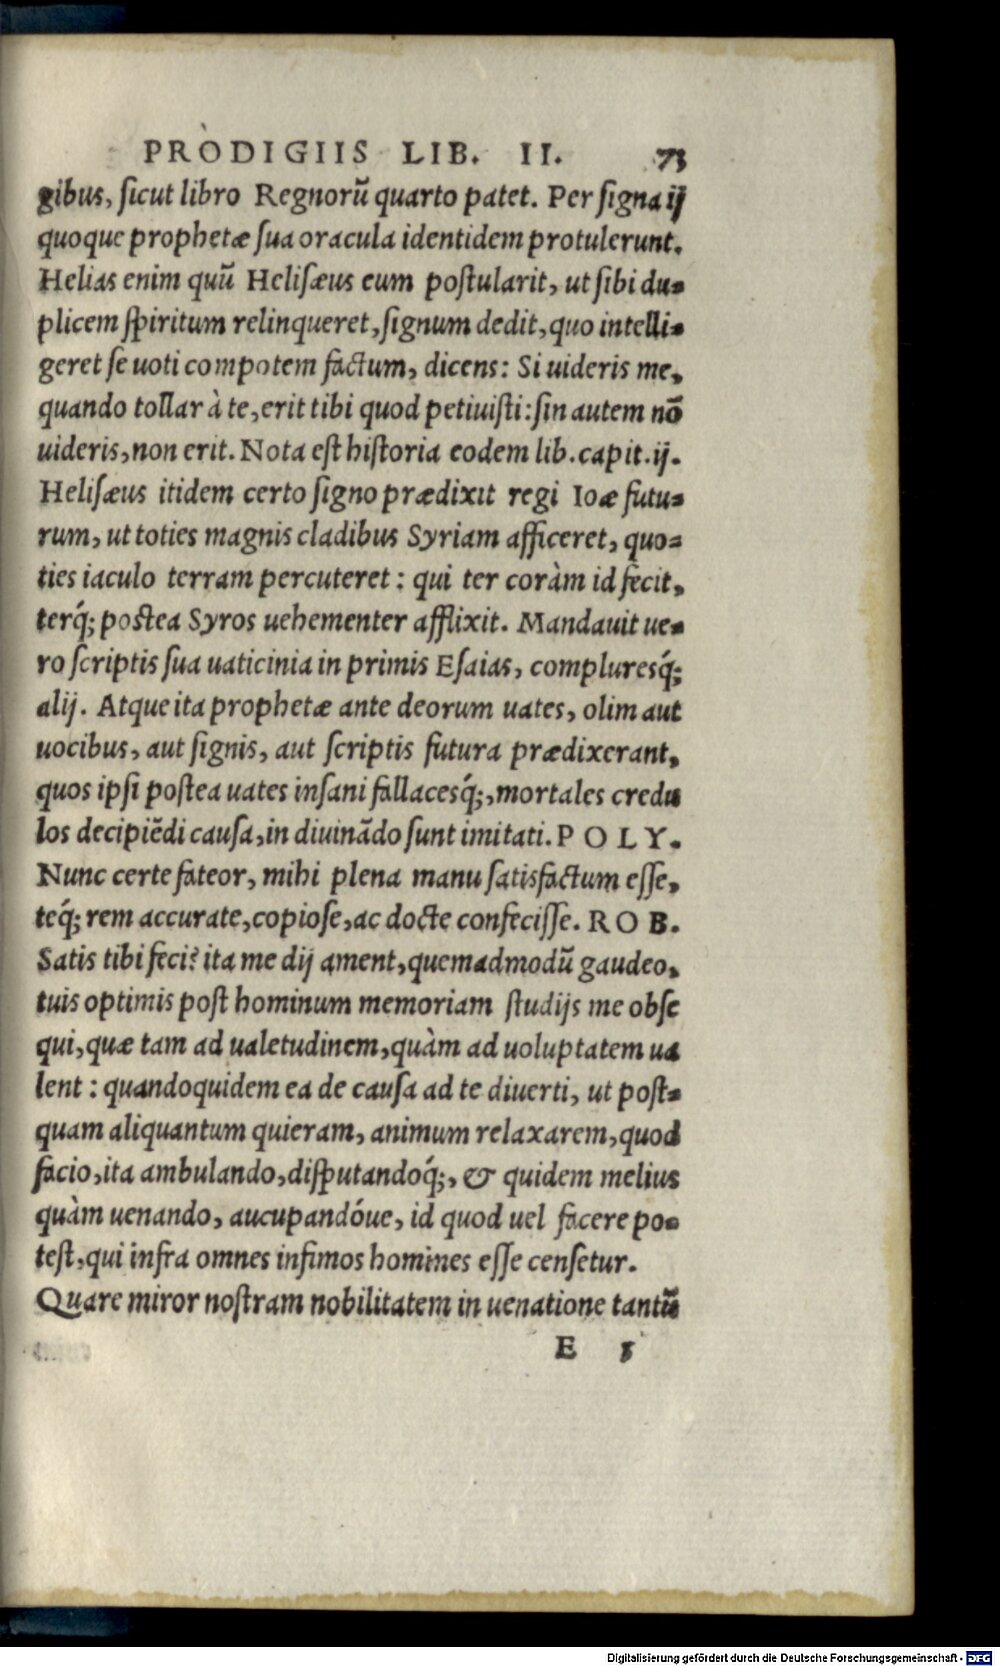 PRODIGIIS LIB. II. 73
gibus, sicut libro Regnorū quarto patet. Per signa ij
quoque prophetæ sua oracula identidem protulerunt.
Helias enim quū Helisæus eum postularit, ut sibi du-
plicem spiritum relinqueret, signum dedit, quo intelli-
geret se uoti compotem factum, dicens: Si uideris me,
quando tollar à te, erit tibi quod petiuisti: sin autem nō
uideris, non erit. Nota est historia eodem lib. capit. ij.
Helisæus itidem certo signo prædixit regi Ioæ futu-
rum, ut toties magnis cladibus Syriam afficeret, quo-
ties iaculo terram percuteret: qui ter coràm id fecit,
terq́; postea Syros uehementer afflixit. Mandauit ue-
ro scriptis sua uaticinia in primis Esaias, compluresq́;
alij. Atque ita prophetæ ante deorum uates, olim aut
uocibus, aut signis, aut scriptis futura prædixerant,
quos ipsi postea uates insani fallacesq́;, mortales credu
los decipiēdi causa, in diuinādo sunt imitati. POLY.
Nunc certe fateor, mihi plena manu satisfactum esse,
teq́; rem accurate, copiose, ac docte confecisse. ROB.
Satis tibi feci? ita me dij ament, quemadmodū gaudeo,
tuis optimis post hominum memoriam studijs me obse
qui, quæ tam ad ualetudinem, quàm ad uoluptatem ua
lent: quandoquidem ea de causa ad te diuerti, ut post-
quam aliquantum quieram, animum relaxarem, quod
facio, ita ambulando, disputandoq́;, & quidem melius
quàm uenando, aucupandóue, id quod uel facere po-
test, qui infra omnes infimos homines esse censetur.
Quare miror nostram nobilitatem in uenatione tantū
E 5
Digitalisierung gefördert durch die Deutsche Forschungsgemeinschaft - DFG